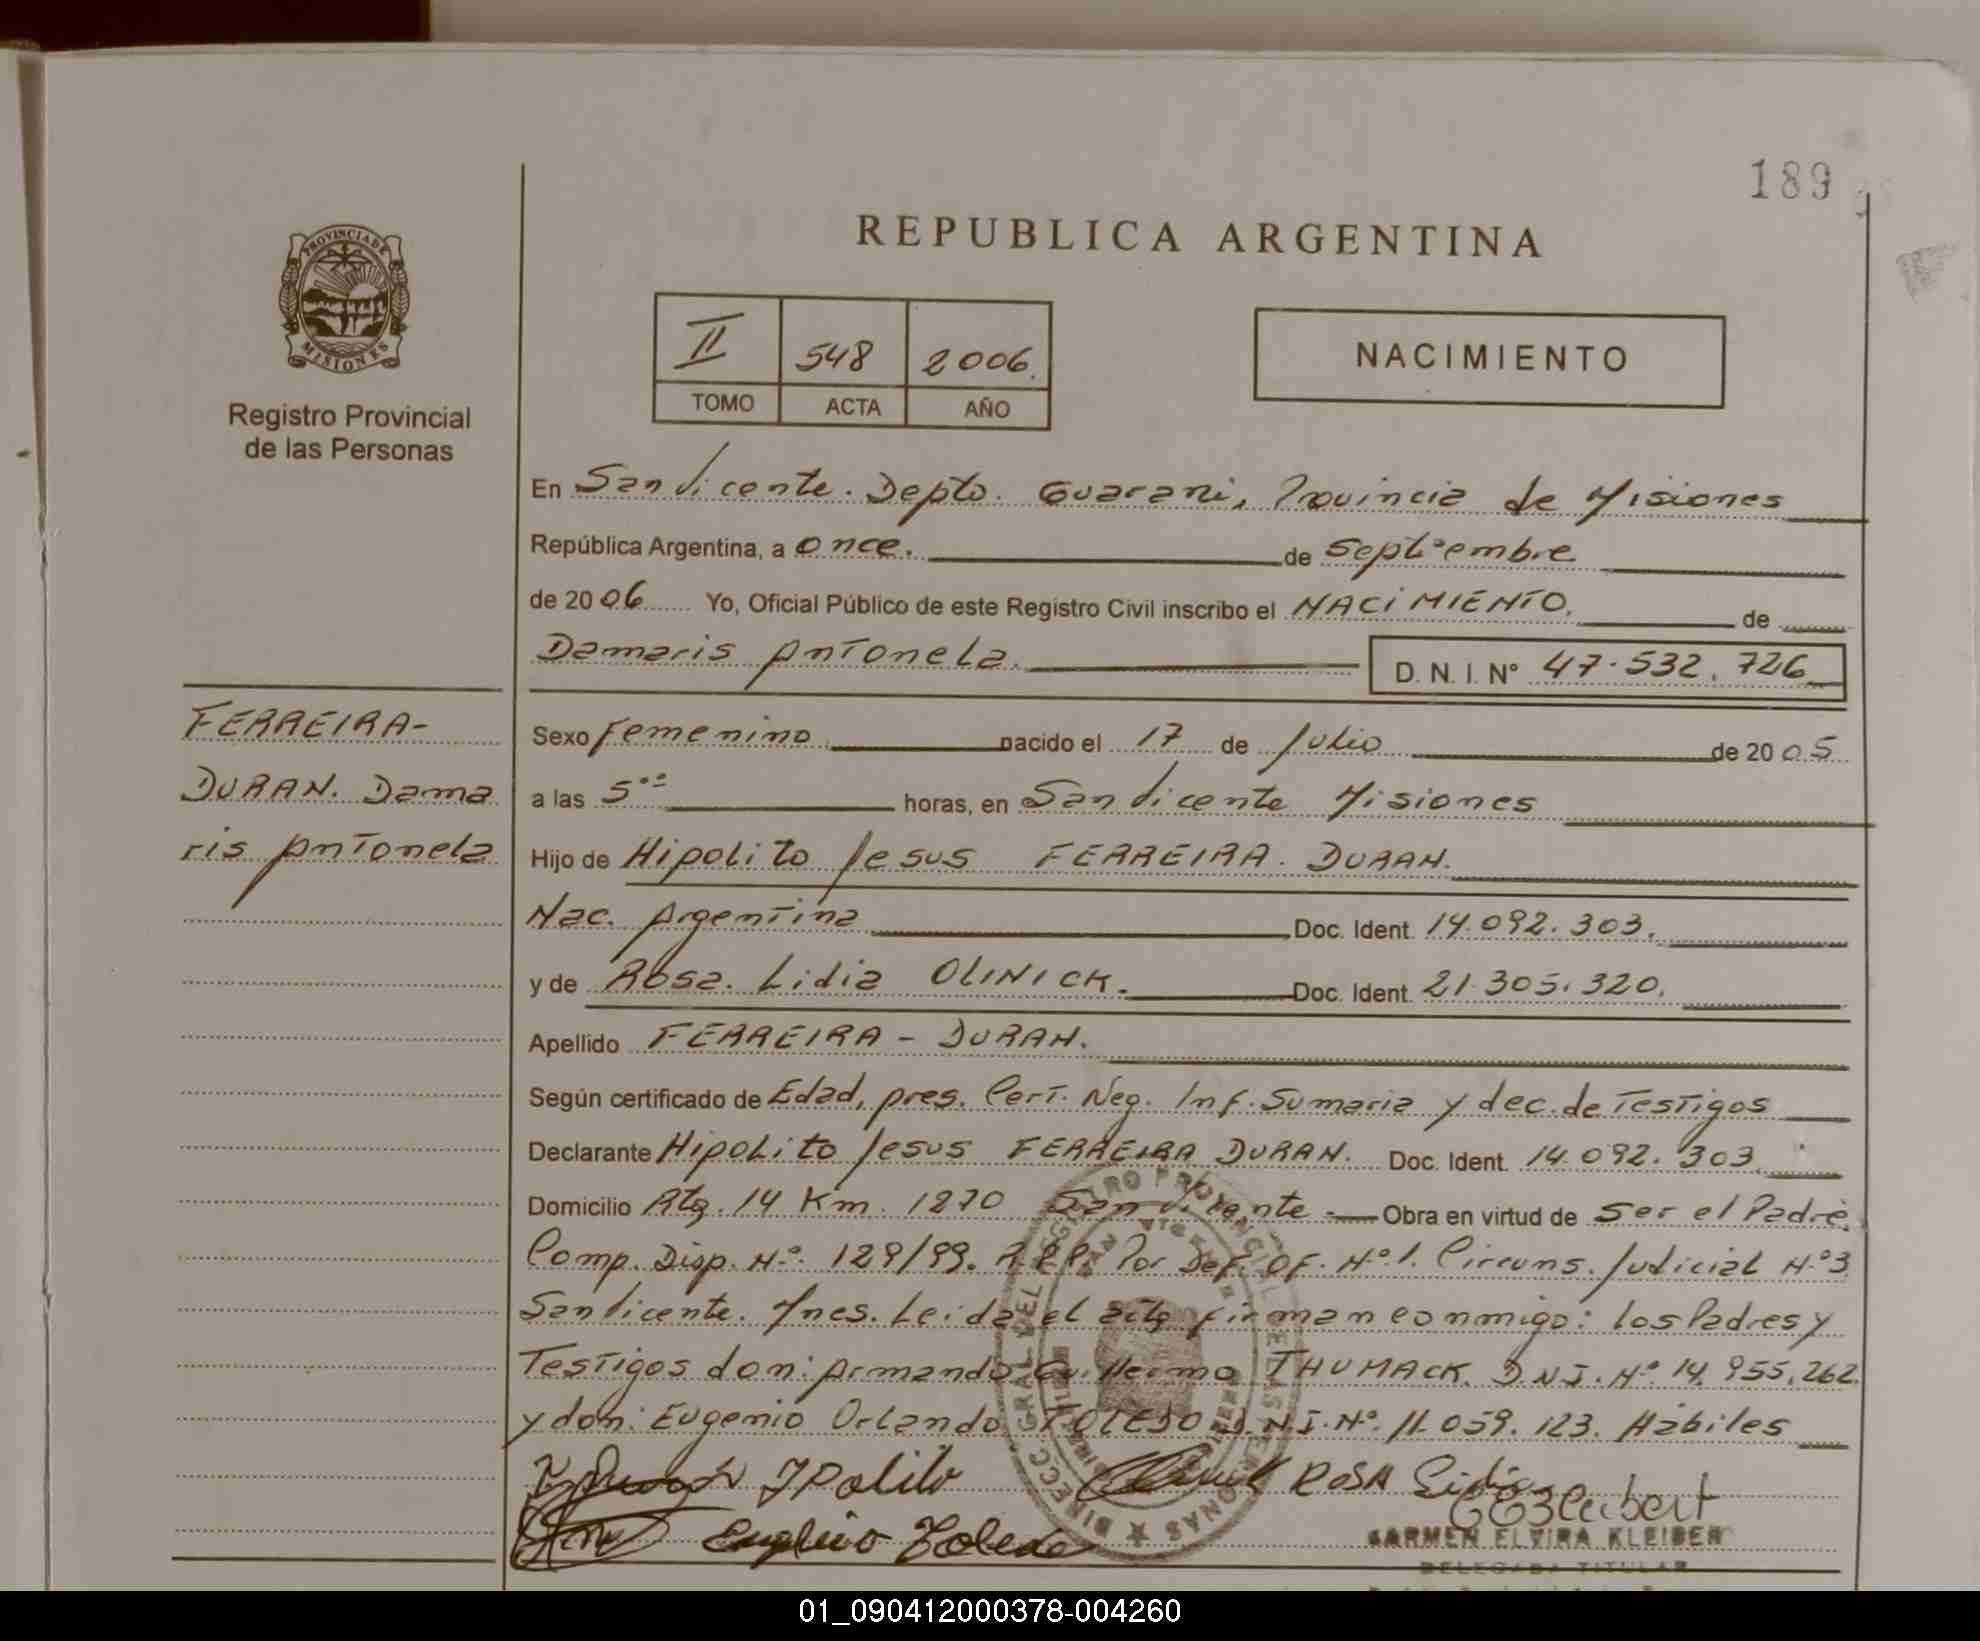 189
REPUBLICA ARGENTINA
PROVINCIA DE
MISIONES
Registro Provincial
de las Personas
II 548 2006.
TOMO ACTA AÑO
NACIMIENTO
En San Vicente. Depto. Guarani, Provincia de Misiones
República Argentina, a once. de Septiembre
de 2006 Yo, Oficial Público de este Registro Civil inscribo el NACIMIENTO. de
Damaris Antonela. D. N. I. Nº 47.532.726
FERREIRA-
DURAN. Dama
ris Antonela
Sexo Femenino nacido el 17 de Julio de 2005
a las 5°° horas, en San Vicente Misiones
Hijo de Hipolito Jesus FERREIRA. DURAN.
Nac. Argentina Doc. Ident. 14.092.303.
y de Rosa. Lidia OLINICK. Doc. Ident. 21.305.320.
Apellido FERREIRA - DURAN.
Según certificado de Edad, pres. Cert. Neg. Inf. Sumaria y dec. de Testigos
Declarante Hipolito Jesus FERREIRA DURAN. Doc. Ident. 14.092.303
Domicilio Rta. 14 Km. 1270 San Vicente - Obra en virtud de Ser el Padre.
Comp. Disp. Nº. 129/99. R.P.P. Por Def. Of. Nº 1. Circuns. Judicial Nº 3
San Vicente. Mnes. Leida el acta firman conmigo: los Padres y
Testigos don: Armando Guillermo THUMACK. D.N.I. Nº 14.955.262
y don: Eugenio Orlando TOLEDO D.N.I. Nº. 11.059.123. Habiles
Ipolito ROSA Lidia
Eugenio Toledo
CARMEN ELVIRA KLEIBER
DELEGADA TITULAR
DIRECC. GRAL. DEL REGISTRO PROVINCIAL DE LAS PERSONAS
01_090412000378-004260